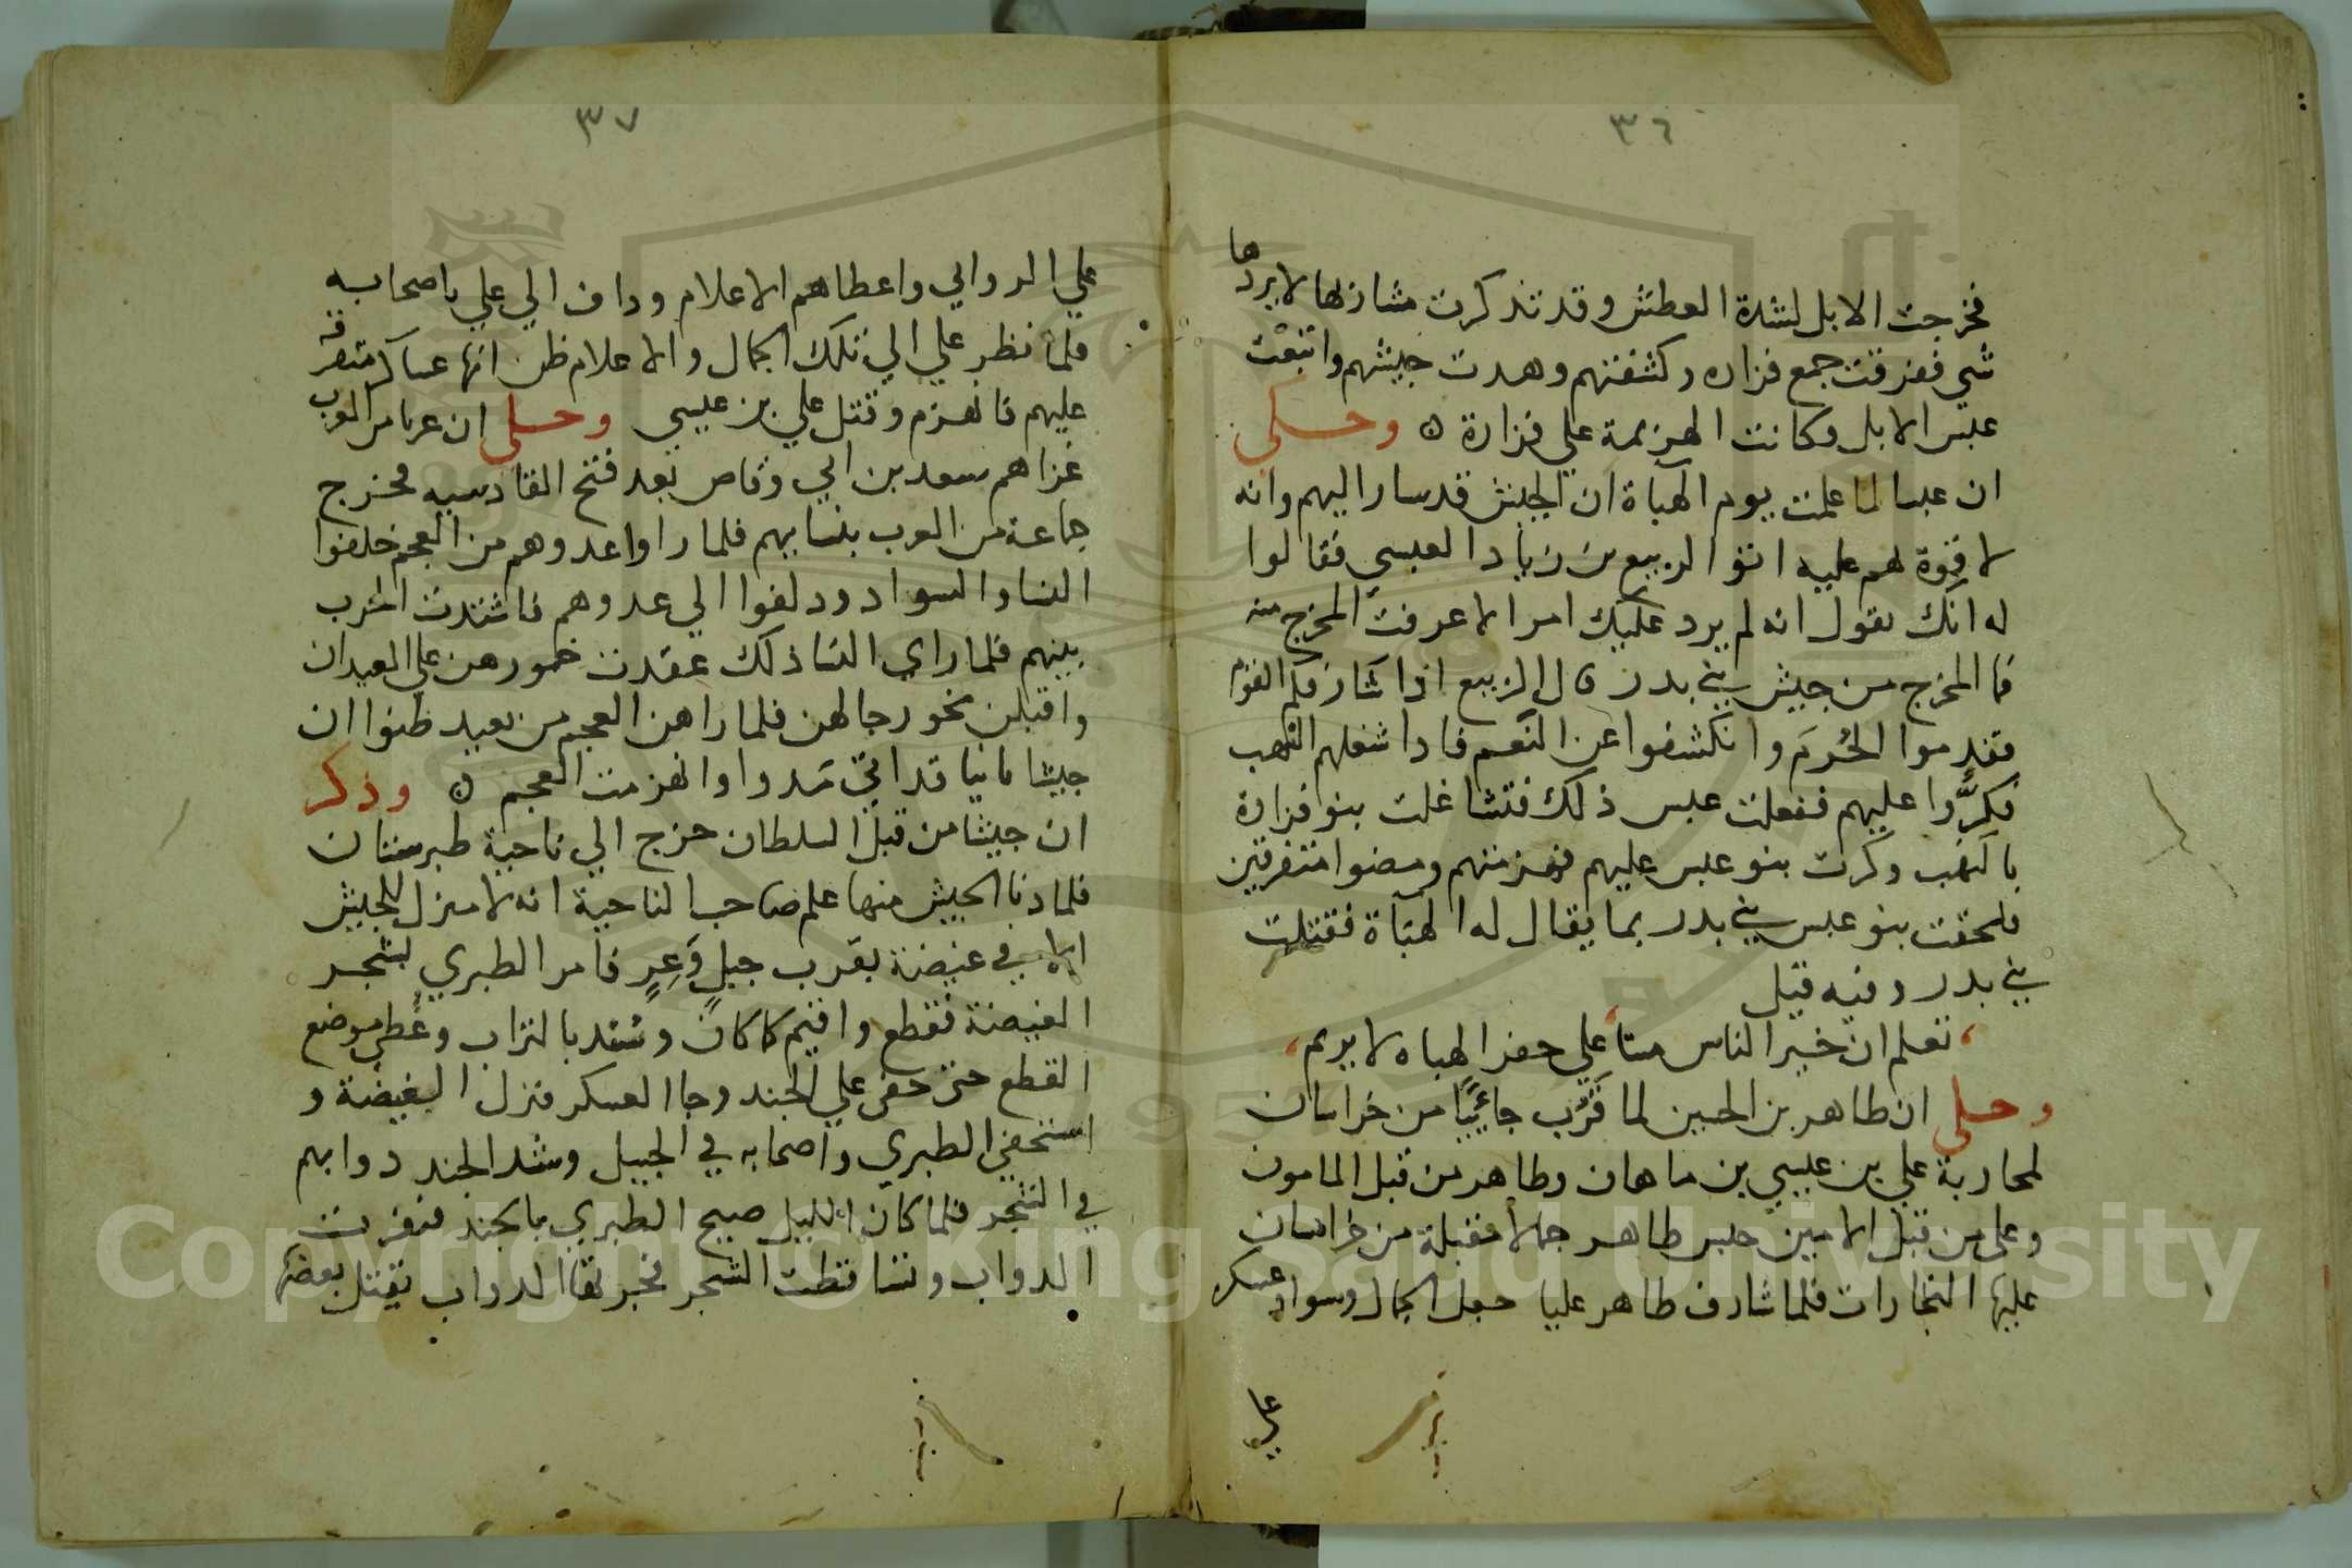 ٣٦
فخرجت الابل لشدة العطش وقد تذكرت مشاربها لا يردها
شي ففرقت جمع فزاره وكشفتهم وهدت جيشهم واتبعت
عبس الابل وكانت الهزيمة علي فزارة ٥ وحكي
ان عبسا لما علمت يوم الهباة ان الجيش قد سار اليهم وانه
لا قوة لهم عليه اتوا الربيع بن زياد العبسي فقالوا
له انك تقول انه لم يرد عليك امر الا عرفت المخرج منه
فما المخرج من جيش بني بدر قال الربيع اذا القوم
فقدموا الحُرَم وانكشفوا عن النَّعم فاذا شغلهم النهب
فكرُّوا عليهم ففعلت عبس ذلك فتشاغلت بنو فزارة
بالنهب وكرت بنو عبس عليهم فهزمتهم ومضوا متفرقين
فلحقت بنو عبس بني بدر بما يقال له الهباة فقتلت
بني بدر وفيه قيل
تعلم ان خير الناس ميتا علي جفر الهباه لا يريم
وحكي ان طاهر بن الحسين لما قَرُب جائيًا من خراسان
لمحاربة علي بن عيسي بن ماهان وطاهر من قبل المامون
وعلي من قبل الامين حبس طاهر جمالا مقبلة من خراسان
عليها التجارات فلما شارف طاهر عليا جعل الجمال وسواد عسكر
علي
٣٧
علي الروابي واعطاهم الاعلام ودلف الي علي باصحابه
فلما نظر علي الي تلك الجمال والاعلام ظن انها عساكر متفرقة
عليهم فانهزم وقتل علي بن عيسي وحكي ان عربا من العرب
غزاهم سعد بن ابي وقاص بعد فتح القادسيه فخرج
جماعة من العرب بنسايهم فلما راوا عدوهم من العجم خلفوا
النسا والسواد ودلفوا الي عدوهم فاشتدت الحرب
بينهم فلما راي النسا ذلك عقدت خمورهن علي العيدان
واقبلن نحو رجالهن فلما راهن العجم من بعيد ظنوا ان
جيشا ثانيا قد اتي مددا وانهزمت العجم ٥ وذكر
ان جيشا من قبل السلطان خرج الي ناحية طبرستان
فلما دنا الجيش منها علم صاحب الناحية انه لا منزل للجيش
الا في غيضة بقرب جبلٍ وَعِرٍ فامر الطبري بشجر
الغيضة فقطع واقيم كما كان وسُند بالتراب وغُطي موضع
القطع حتى خفي علي الجند وجا العسكر فنزل الغيضة و
استخفي الطبري واصحابه في الجبل وشد الجند دوابهم
في الشجر فلما كان الليل صيح الطبري بالجند فنفرت
الدواب وتساقطت الشجر الدواب يقتل بعضها